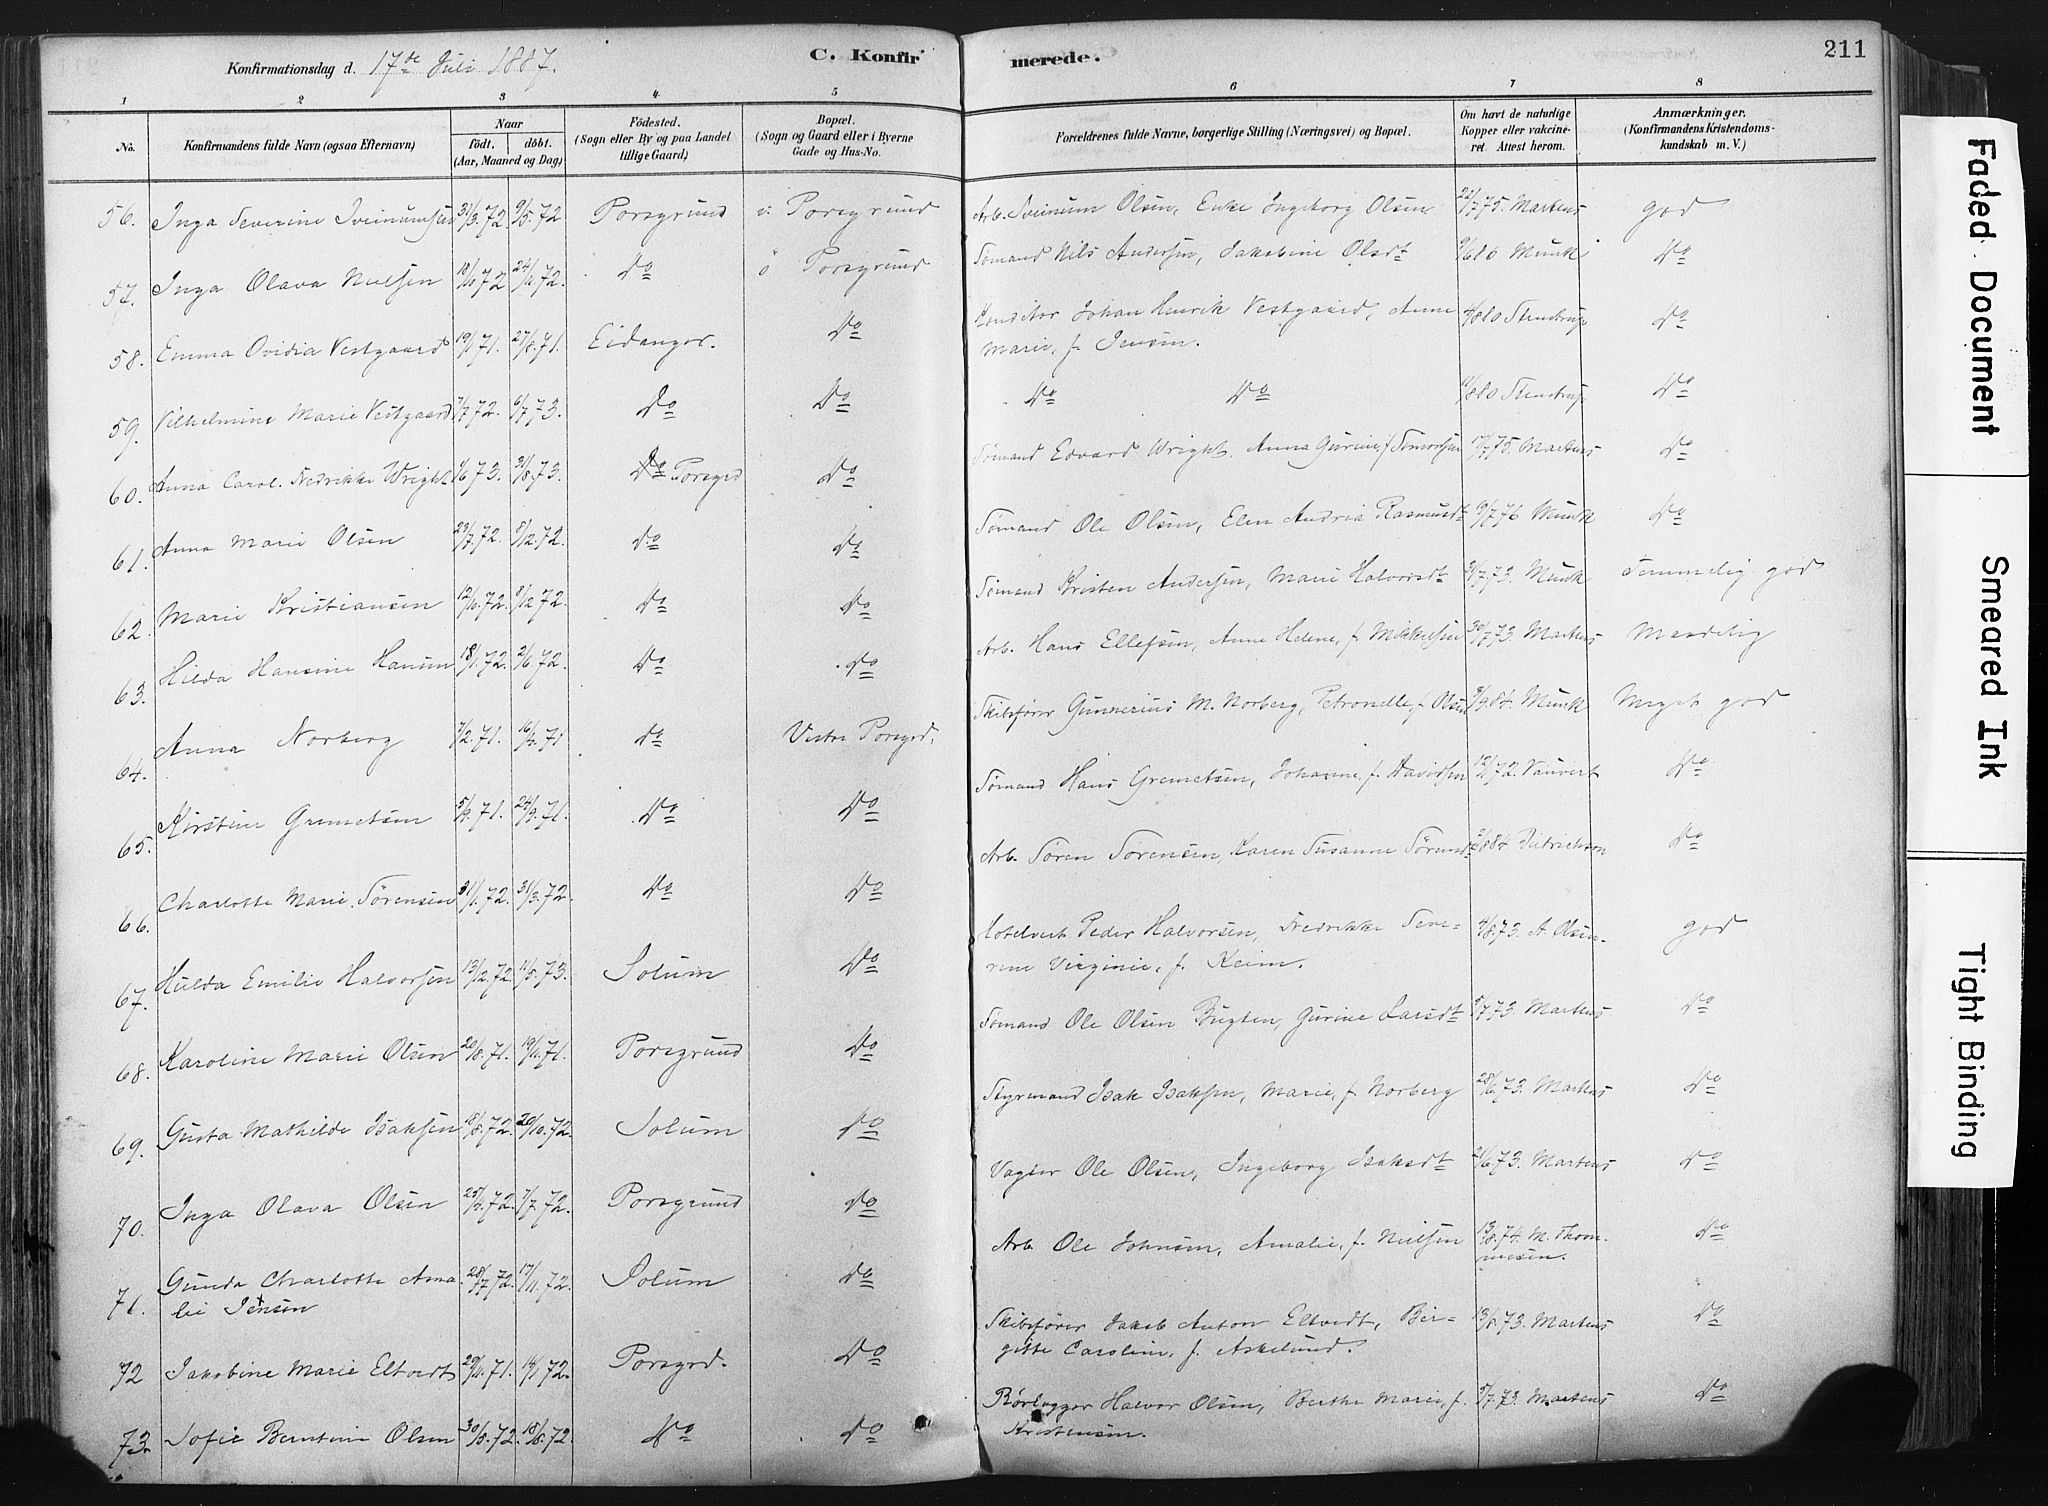 Konfirmationsdag d. 17de Juli 1887. C. Konfirmerede. 211
1 2 3 4 5 6 7 8
No. Konfirmandens fulde Navn (ogsaa Efternavn) Naar født. døbt. (Aar, Maaned og Dag) Fødested. (Sogn eller By og paa Landet tillige Gaard) Bopæl. (Sogn og Gaard eller i Byerne Gade og Hus-No. Forældrenes fulde Navne, borgerlige Stilling (Næringsvei) og Bopæl. Om havt de naturlige Kopper eller vakcineret. Attest herom. Anmærkninger. (Konfirmandens Kristendomskundskab m. V.)
56. Inga Severine Sveinumsen 31/3.72. 9/5.72 Porsgrund v. Porsgrund Arb. Sveinum Olsen, Enke Ingeborg Olsen 22/7.75. Martens god
57. Inga Olava Nielsen 18/10.72 24/11.72. Do ö Porsgrund Sømand Nils Andersen, Jakobine Olsdt 9/6.80 Munk Do
58. Emma Ovidia Vestgaard 19/1.71. 27/8.71. Eidanger. Do Konditor Johan Henrik Vestgaard, Anne
Marie, f. Jensen. 11/8.80 Stenstrup Do
59. Vilhelmine Marie Vestgaard 7/7.72. 6/7.73. Do Do Do Do 11/8.80 Stenstrup Do
60. Anna Carol. Fredrikke Wright 1/6.73. 31/8.73. Porsgrd Do Sømand Edvard Wright, Anna Gurine, f. 17/7.75. Martens Do
61. Anna Marie Olsen 23/7.72. 8/12.72. Do Do Sømand Ole Olsen, Elen Andria Rasmusdt 9/7.76 Munk Do
62. Marie Kristiansen 12/10.72. 8/12.72. Do Do Sømand Kristen Andersen, Marie Halvorsdt 3/7.73. Munk Temmelig god
63. Hilda Hansine Hansen 18/1.72. 2/6.72. Do Do Arb. Hans Ellefsen, Anne Helene, f. Mikkelsen 30/7.73. Martens Maadelig
64. Anna Norberg 7/2.71. 16/4.71 Do Vestre Porsgrd. Skibsfører Gunnerius M. Norberg, Petronelle, f. Olsen 3/9.84. Munk Meget god
65. Kirstine Gremetsen 5/9.71. 24/9.71. Do Do Sømand Hans Gremetsen, Johanne, f. Davidsen 12/1.72. Vauvert Do
66. Charlotte Marie Sørensen 31/1.72. 31/3.72 Do Do Arb. Søren Sørensen, Karen Susanne Sørensdt 2/8.84 Dietrichson Do
67. Hulda Emilie Halvorsen 13/12.72. 11/5.73. Solum Do Hotelvert Peder Halvorsen, Fredrikke Seve-
rine Virginie, f. Keim. 4/8.73. A. Olsen god
68. Karoline Marie Olsen 20/8.71. 19/11.71. Porsgrund Do Sømand Ole Olsen Bugten, Gurine Larsdt 5/7.73 Martens Do
69. Gusta Mathilde Isaksen 18/8.72. 20/10.72. Solum Do Styrmand Isak Isaksen, Marie, f. Norberg 28/6.73. Martens Do
70. Inga Olava Olsen 25/4.72. 7/7.72. Porsgrund Do Vagter Ole Olsen, Ingeborg Isaksdt 2/6.73. Martens Do
71. Gunda Charlotte Ama-
lie Jensen 28/7.72. 17/11.72. Solum Do Arb. Ole Johnsen, Amalie, f. Nielsen 13/8.74. M. Thom-
mesen. Do
72 Jakobine Marie Eltvedt 29/11.71. 14/1.72. Porsgrd. Do Skibsfører Jakob Anton Eltvedt, Bir-
gitte Caroline, f. Askelund. 13/8.73. Martens Do
73. Sofie Berntine Olsen 30/5.72. 18/8.72. Do Do Rørlægger Halvor Olsen, Berthe Marie, f.
Kristensen. 3/7.73. Martens Do
Faded Document
Smeared Ink
Tight Binding